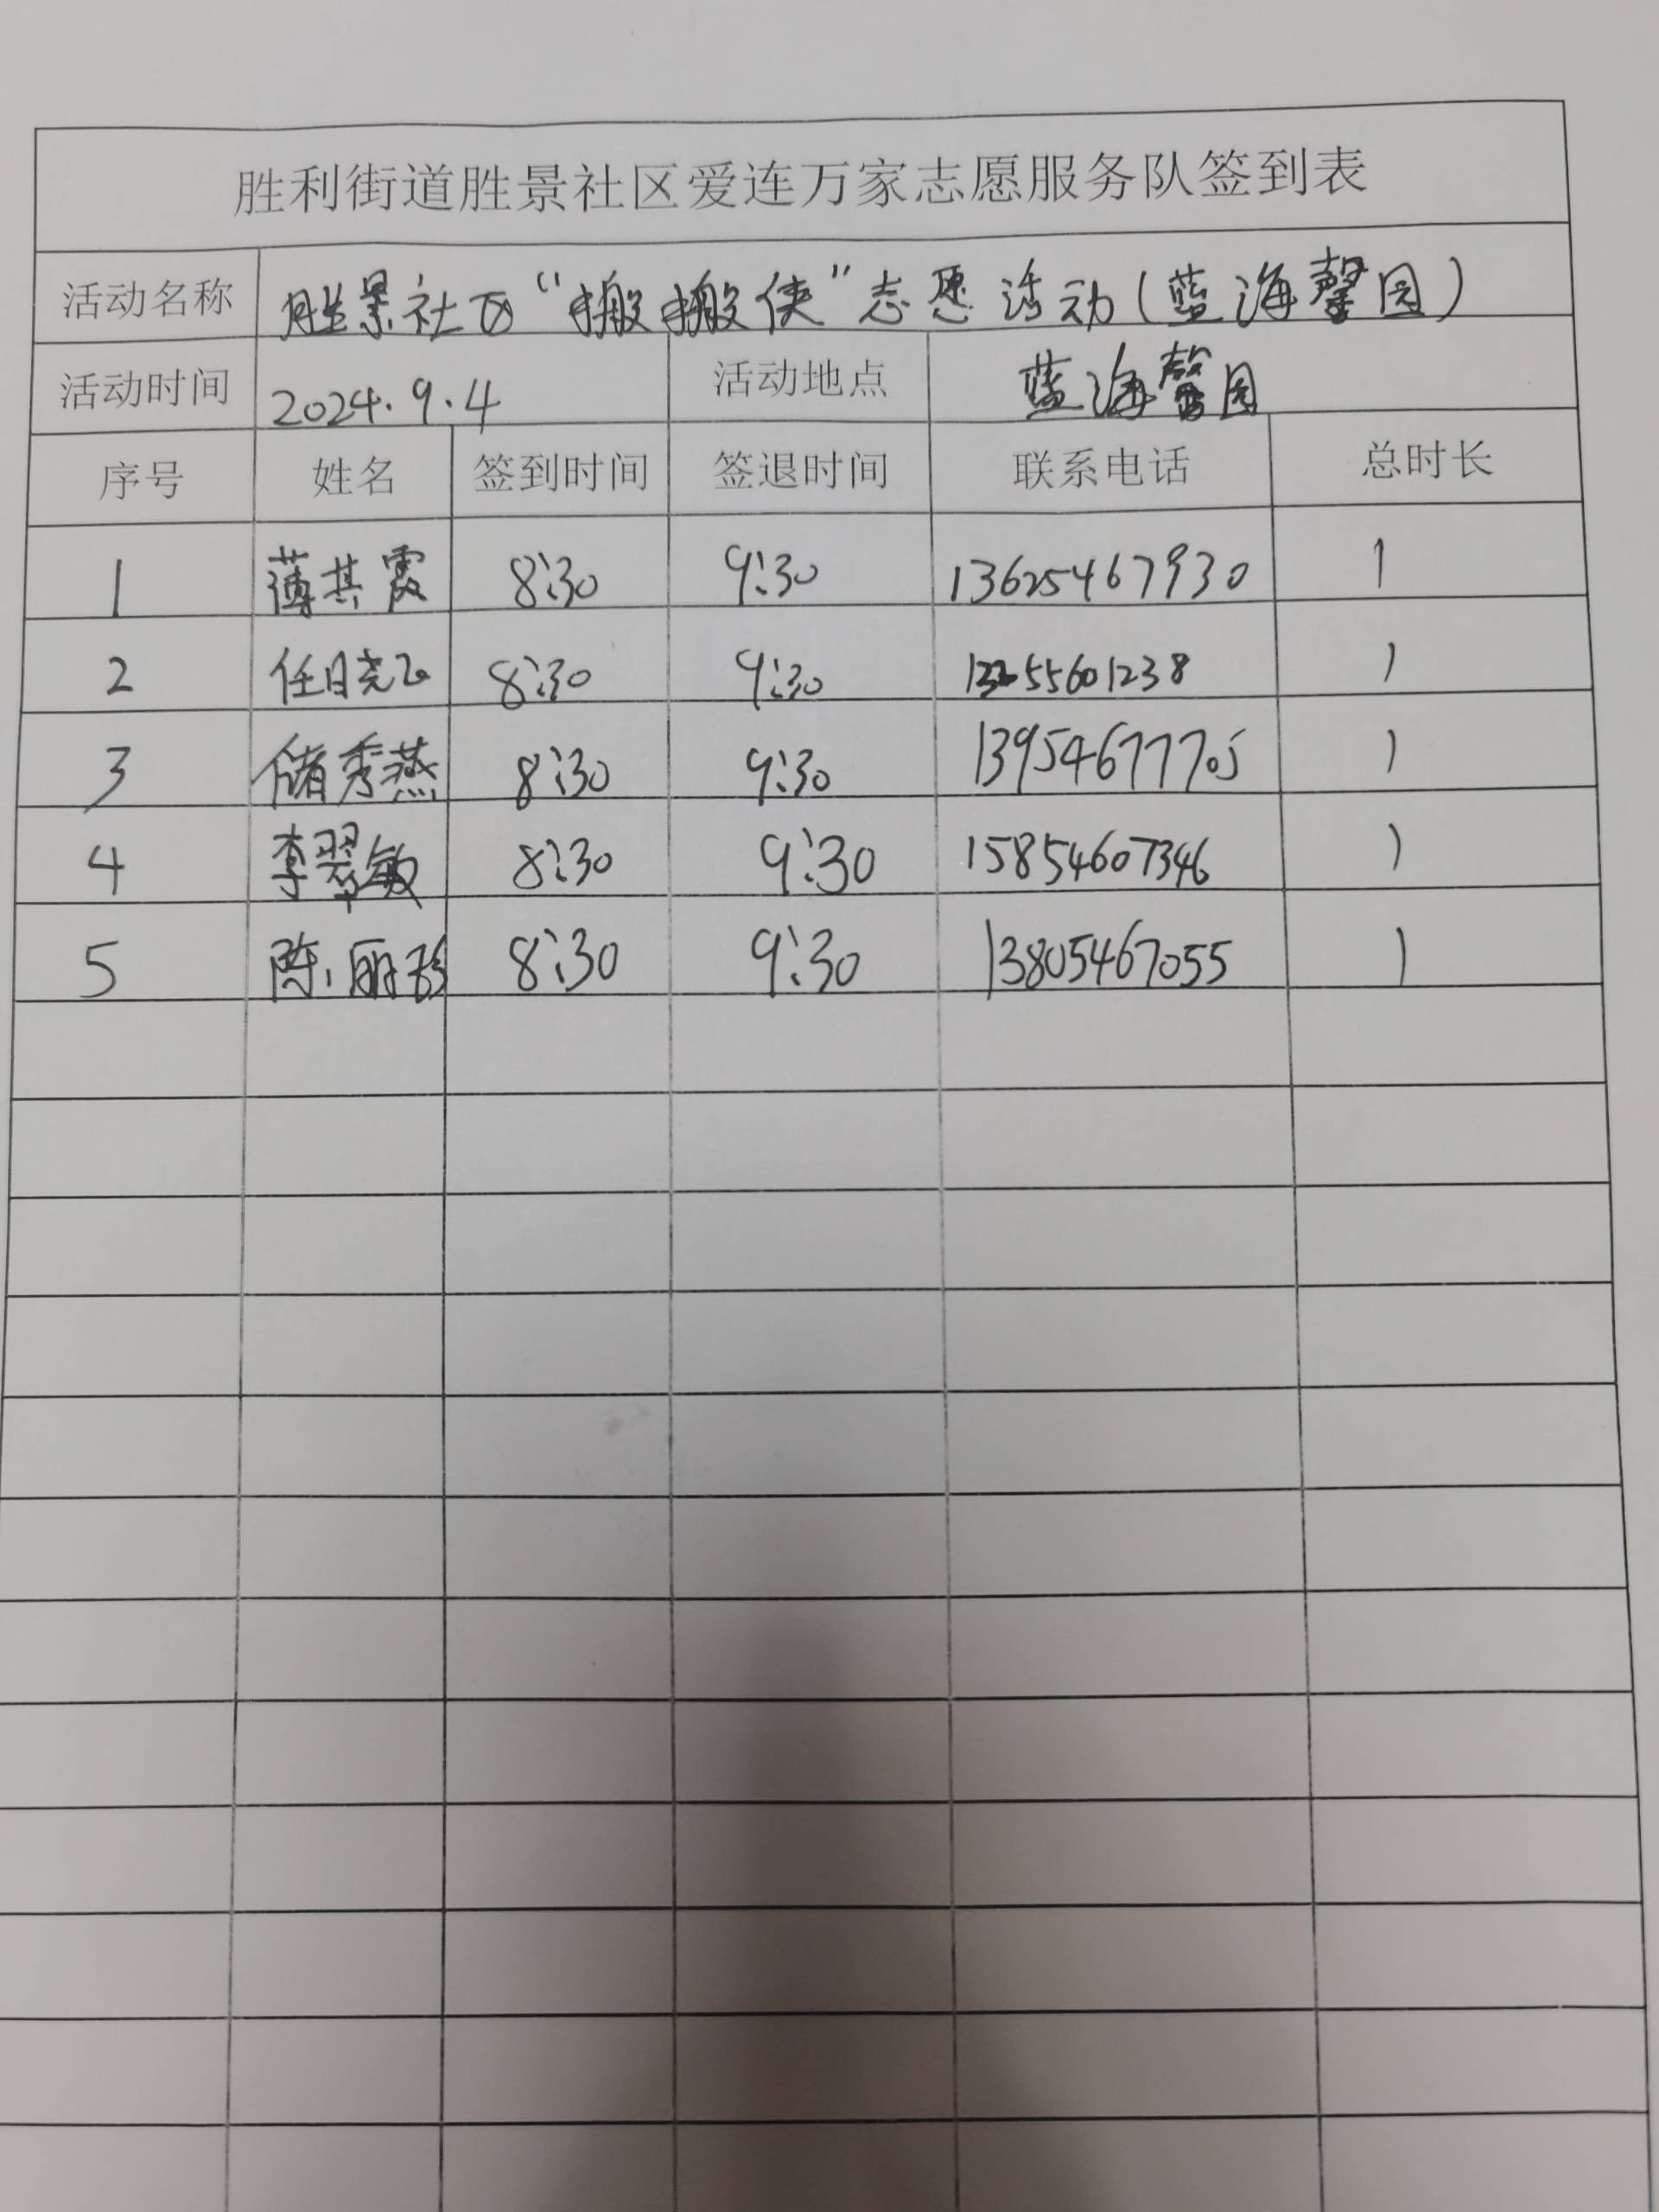 胜利街道胜景社区爱连万家志愿服务队签到表
活动名称 胜景社区“搬搬侠”志愿活动(蓝海馨园)
活动时间 2024.9.4 活动地点 蓝海馨园
序号 姓名 签到时间 签退时间 联系电话 总时长
1 薄其霞 8:30 9:30 13625467930 1
2 任晓飞 8:30 9:30 1
3 储秀燕 8:30 9:30 13954677705 1
4 李翠敏 8:30 9:30 15854607346 1
5 陈丽珍 8:30 9:30 13805467055 1